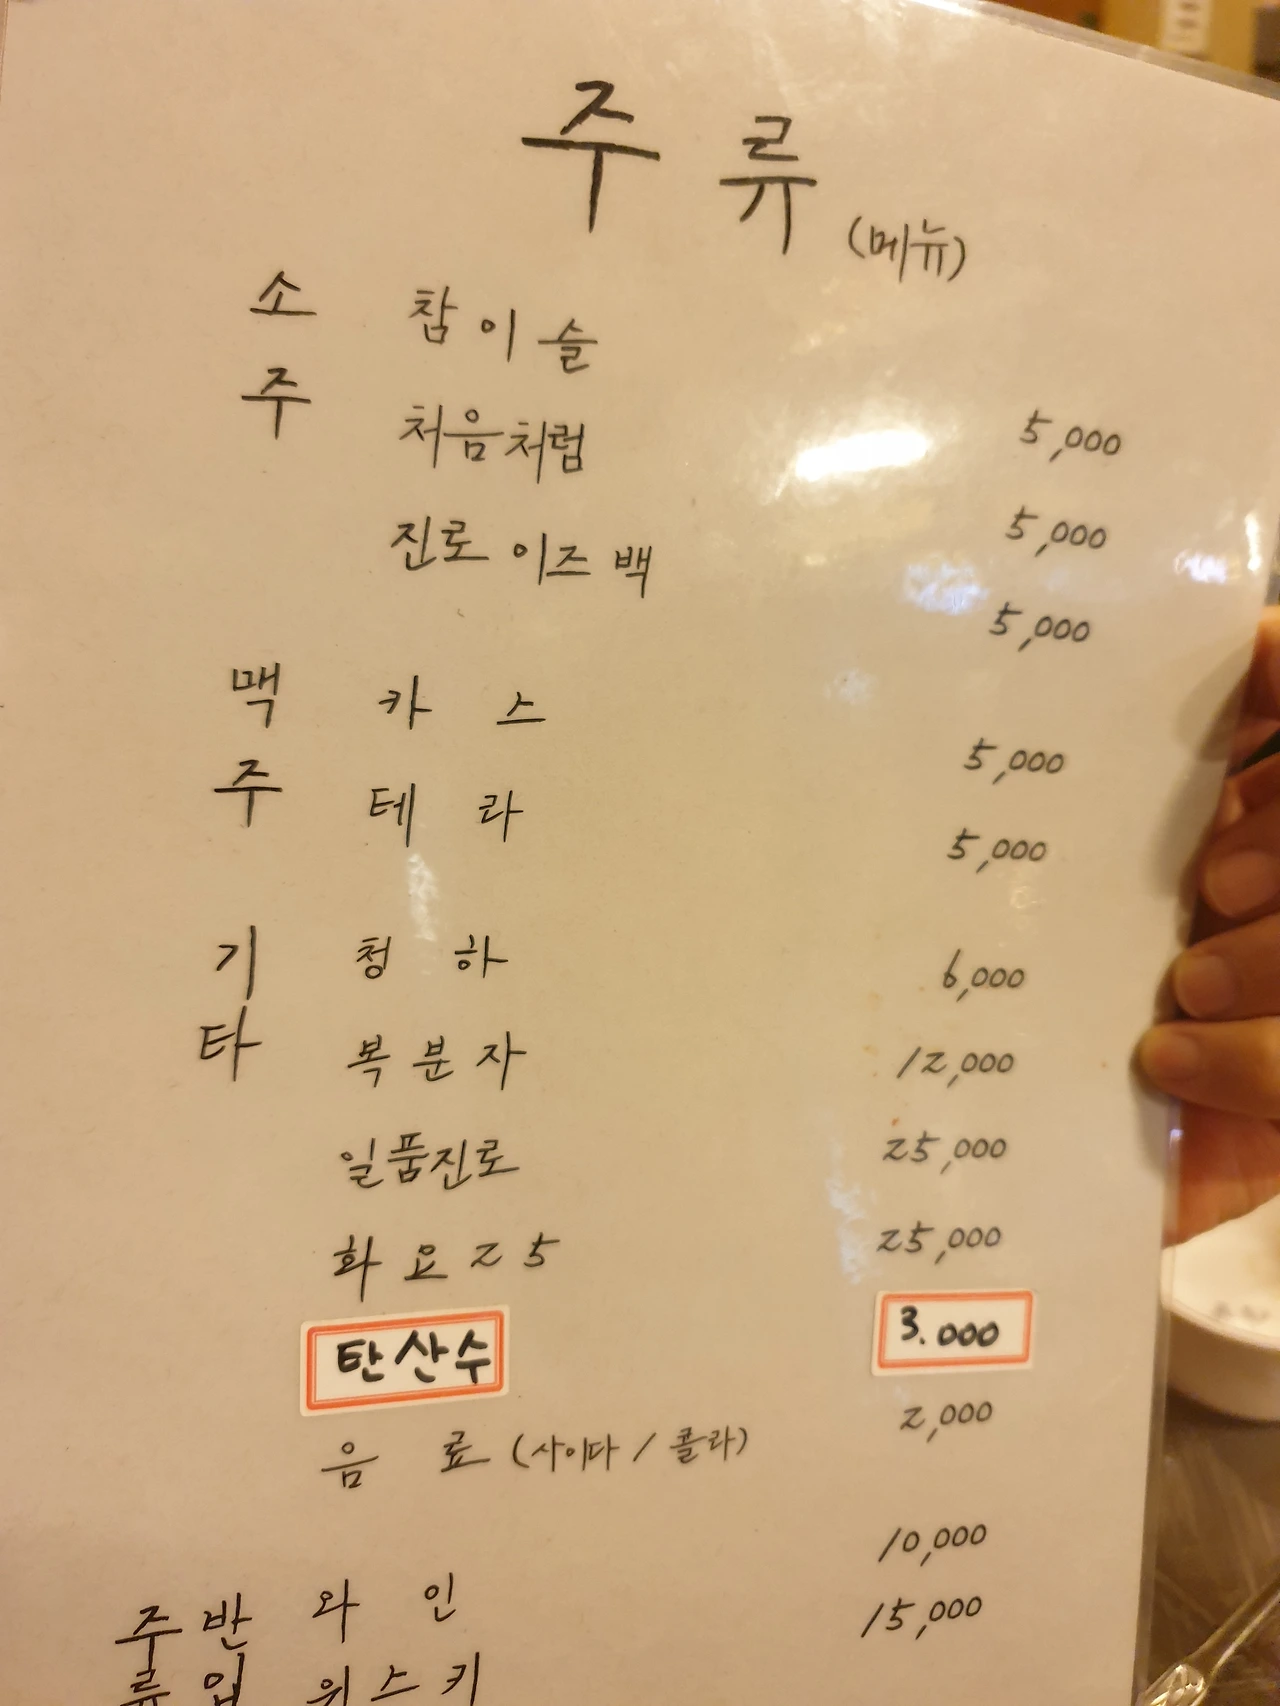 주 류 (메뉴)
소주 참이슬 5,000
처음처럼 5,000
진로 이즈백 5,000
맥주 카스 5,000
테라 5,000
기타 청하 6,000
복분자 12,000
일품진로 25,000
화요25 25,000
탄산수 3.000
음료 (사이다 / 콜라) 2,000
주류 반입 와인 10,000
위스키 15,000